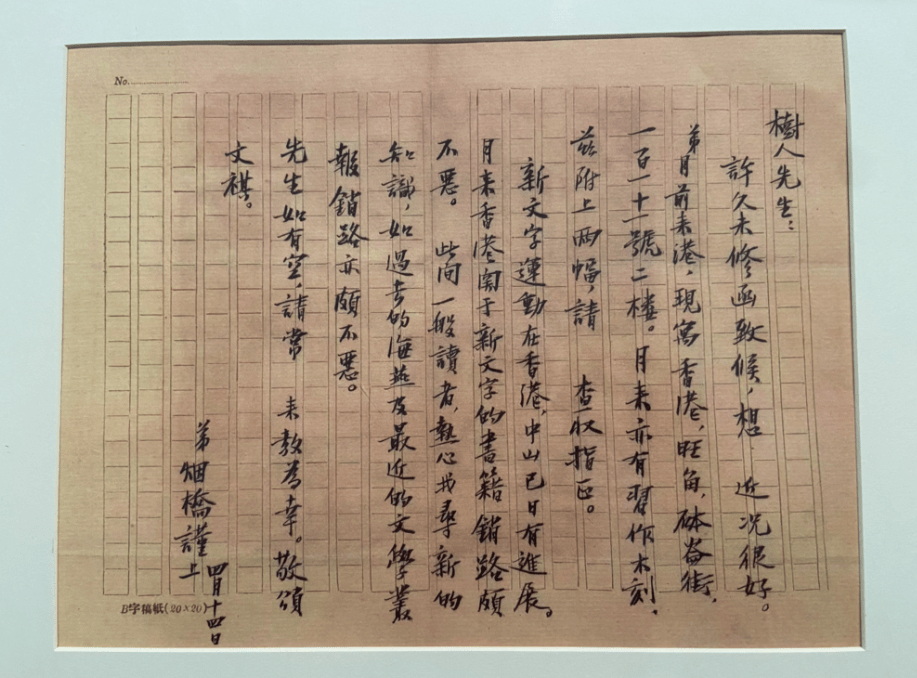 No.
樹人先生：
許久未修函致候，想 近况很好。
弟月前来港，現寓香港，旺角，砵崙街，
一百一十一號二楼。月来亦有習作木刻，
兹附上两幅，請 查收指正。
新文字運動在香港，中山已日有進展。
月来香港関于新文字的書籍銷路頗
不惡。此间一般讀者，熱心找尋新的
知識，如過去的海燕及最近的文學叢
報銷路亦頗不惡。
先生如有空，請常 来教為幸。敬頌
文祺。
弟烟橋謹上
四月十四日
B字稿紙(20×20)